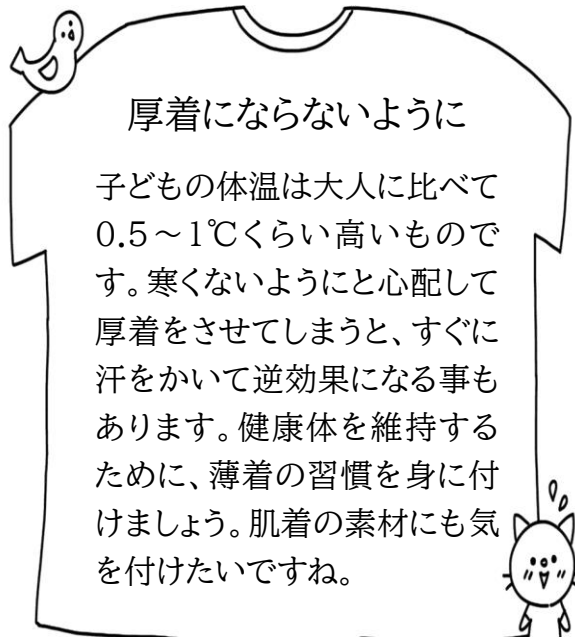 厚着にならないように
子どもの体温は大人に比べて
0.5～1℃くらい高いもので
す。寒くないようにと心配して
厚着をさせてしまうと、すぐに
汗をかいて逆効果になる事も
あります。健康体を維持する
ために、薄着の習慣を身に付
けましょう。肌着の素材にも気
を付けたいですね。